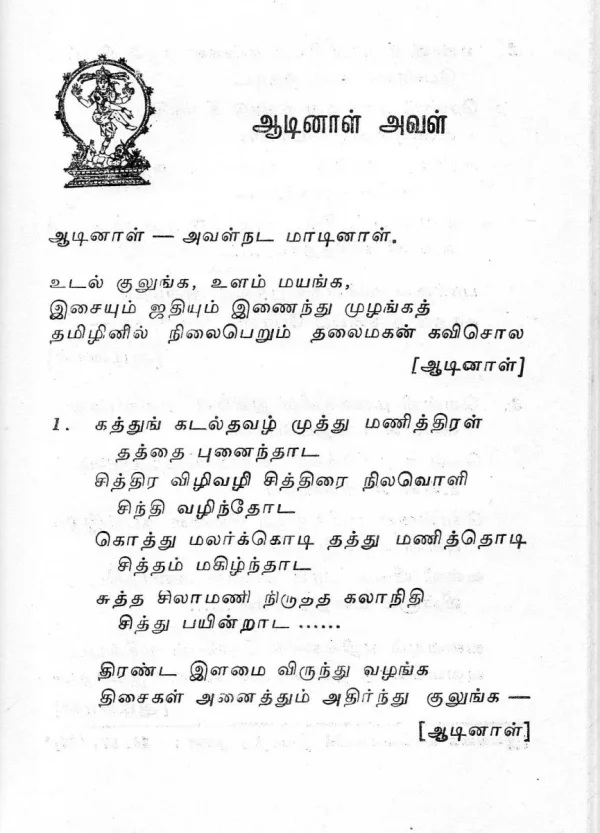 ஆடினாள் அவள்
ஆடினாள் — அவள்நட மாடினாள்.
உடல் குலுங்க, உளம் மயங்க,
இசையும் ஜதியும் இணைந்து முழங்கத்
தமிழினில் நிலைபெறும் தலைமகன் கவிசொல
[ஆடினாள்]
1. கத்துங் கடல்தவழ் முத்து மணித்திரள்
தத்தை புனைந்தாட
சித்திர விழிவழி சித்திரை நிலவொளி
சிந்தி வழிந்தோட
கொத்து மலர்க்கொடி தத்து மணித்தொடி
சித்தம் மகிழ்ந்தாட
சுத்த சிலாமணி நிருத்த கலாநிதி
சித்து பயின்றாட ......
திரண்ட இளமை விருந்து வழங்க
திசைகள் அனைத்தும் அதிர்ந்து குலுங்க —
[ஆடினாள்]